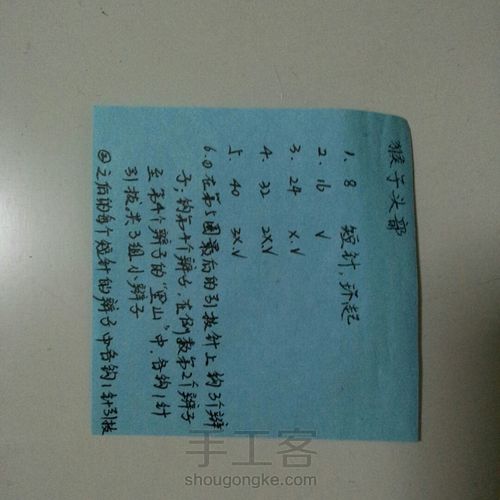 猴子头部
1. 8 短针,环起
2. 16 V
3. 24 X.V
4. 32 2X.V
5. 40 3X.V
6.①在第5圈最后的引拔针上钩3个辫
子;钩第4个辫子,在倒数第2个辫子
至第4个辫子的“里山”中,各钩1针
引拔。共3组小辫子
②之后的每个短针的辫子中各钩1针引拔
手工客
shougongke.com